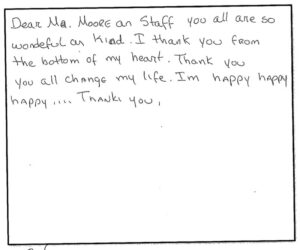 Dear Ma. Moore an Staff you all are so
wondeful an Kind. I thank you from
the bottom of my heart. Thank you
you all change my life. Im happy happy
happy.... Thanks you.